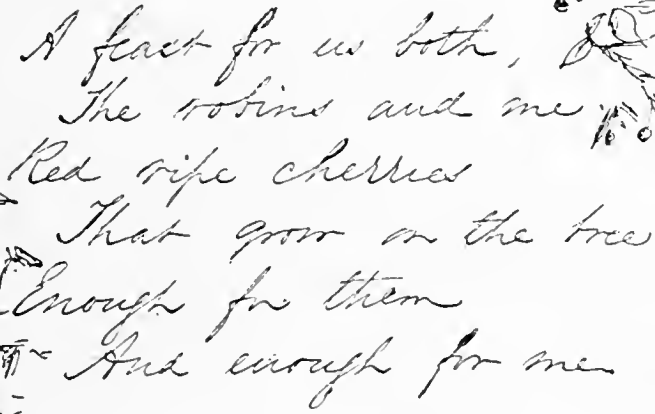 A feast for us both,
The robins and me.
Red ripe cherries
That grow on the tree
Enough for them
And enough for me.